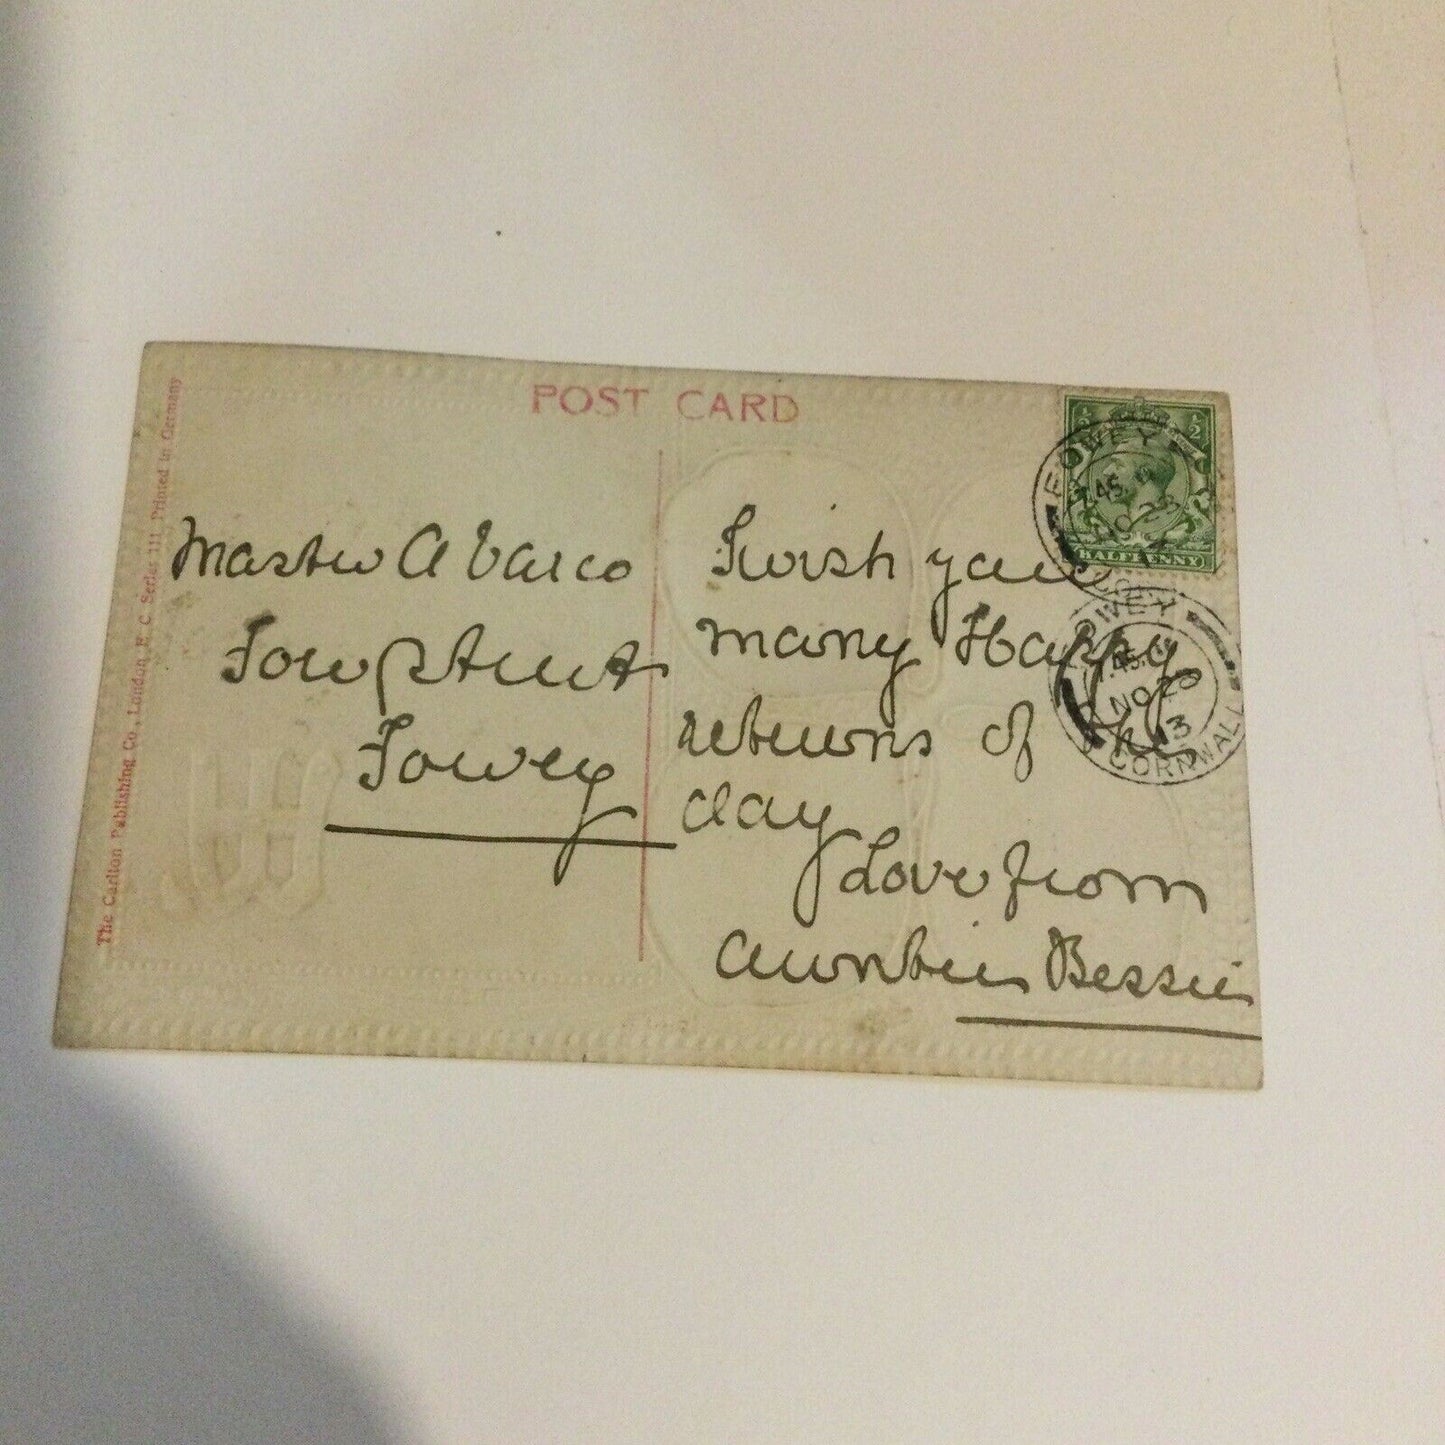 POST CARD
The Carlton Publishing Co., London, E. C. Series 111 Printed in Germany
Master A Varco
Fore Street
Fowey
I wish you
many Happy
returns of the
day
Love from
Auntie Bessie
½ ½
HALFPENNY
FOWEY
7.45
NO 28
FOWEY
.45
NO 28
13
CORNWALL